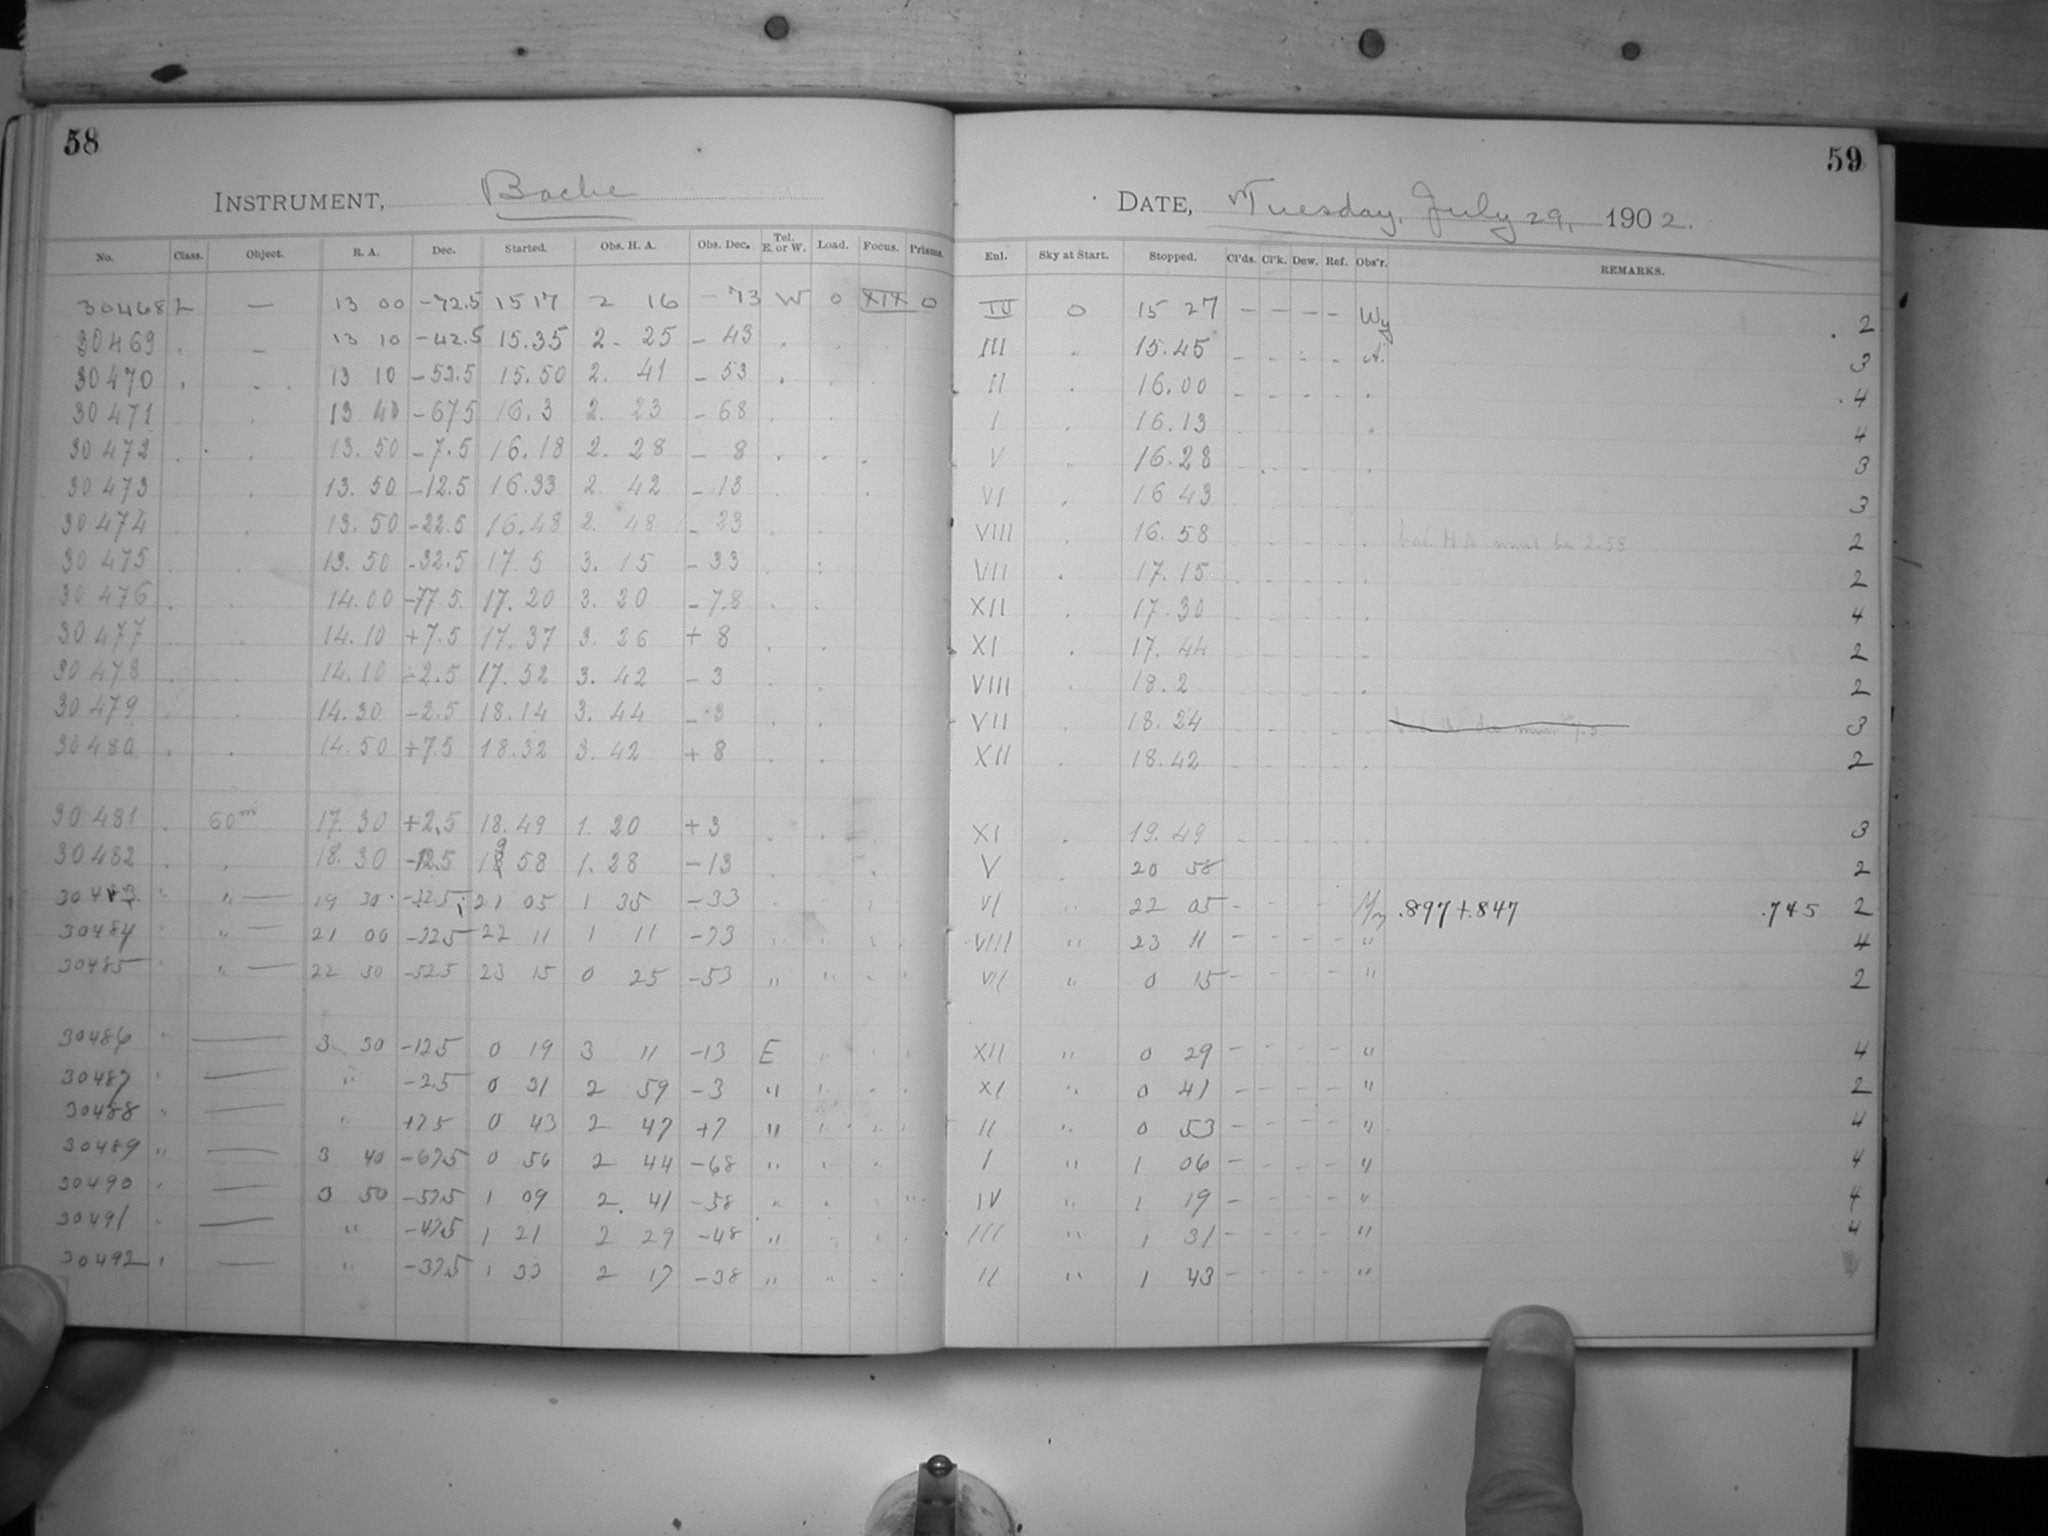 58
INSTRUMENT, Bache
No. Class. Object. R. A. Dec. Started. Obs. H. A. Obs. Dec. Tel. E. or W. Load. Focus. Prisms.
30468 L — 13 00 -72.5 15 17 2 16 - 73 W 0 XIX 0
30469 . - 13 10 -42.5 15.35 2. 25 - 43
30470 . - . 13 10 -52.5 15.50 2. 41 - 53
30471 . . 13 40 -67.5 16.3 2. 23 - 68
30472 . . 13. 50 -7.5 16.18 2. 28 - 8
30473 . 13. 50 -12.5 16.33 2. 42 - 13
30474 . . 13. 50 -22.5 16.48 2. 48 - 23
30475 . . 13. 50 -32.5 17. 5 3. 15 - 33
30476 . . 14.00 -77.5. 17. 20 3. 20 - 78
30477 . . 14. 10 +7.5 17. 37 3. 26 + 8
30478 . . 14. 10 -2.5 17. 52 3. 42 - 3
30479 . . 14. 30 -2.5 18.14 3. 44 - 3
30480 . . 14. 50 +7.5 18.32 3. 42 + 8
30481 . 60m 17. 30 +2.5 18. 49 1. 20 +3
30482 . . 18. 30 -12.5 19 58 1. 28 -13
30483 " " — 19 30 -32.5 21 05 1 35 -33
30484 " " — 21 00 -22.5 22 11 1 11 -23
30485 " " — 22 50 -52.5 23 15 0 25 -53 " " "
30486 " — 3 30 -12.5 0 19 3 11 -13 E
30487 " — " -2.5 0 31 2 59 -3 "
30488 " — " +7.5 0 43 2 47 +7 "
30489 " — 3 40 -67.5 0 56 2 44 -68 "
30490 " — 3 50 -57.5 1 09 2 41 -58 "
30491 " — " -47.5 1 21 2 29 -48 "
30492 " — " -37.5 1 33 2 17 -38 "
59
DATE, Tuesday, July 29, 1902.
Enl. Sky at Start. Stopped. Cl'ds. Cl'k. Dew. Ref. Obs'r. REMARKS.
IV 0 15 27 — — — — Wy 2
III " 15.45 - - - - A. 3
II . 16.00 - - - - . 4
I . 16.13 . 4
V " 16.28 . 3
VI . 16 43 3
VIII 16. 58 . bad. H A must be 2.58 2
VII . 17. 15 . 2
XII . 17. 30 . 4
XI . 17. 44 . 2
VIII . 18. 2 . 2
VII 18. 24 3
XII . 18. 42 . 2
XI . 19. 49 3
V . 20 58 2
VI " 22 05 - - - My .897+.847 .745 2
VIII " 23 11 - - - - " 4
VII " 0 15 - - - - " 2
XII " 0 29 - - - - " 4
XI " 0 41 - - - - " 2
II " 0 53 - - - - " 4
I " 1 06 - - - - " 4
IV " 1 19 - - - - " 4
III " 1 31 - - - - " 4
II " 1 43 - - - - "